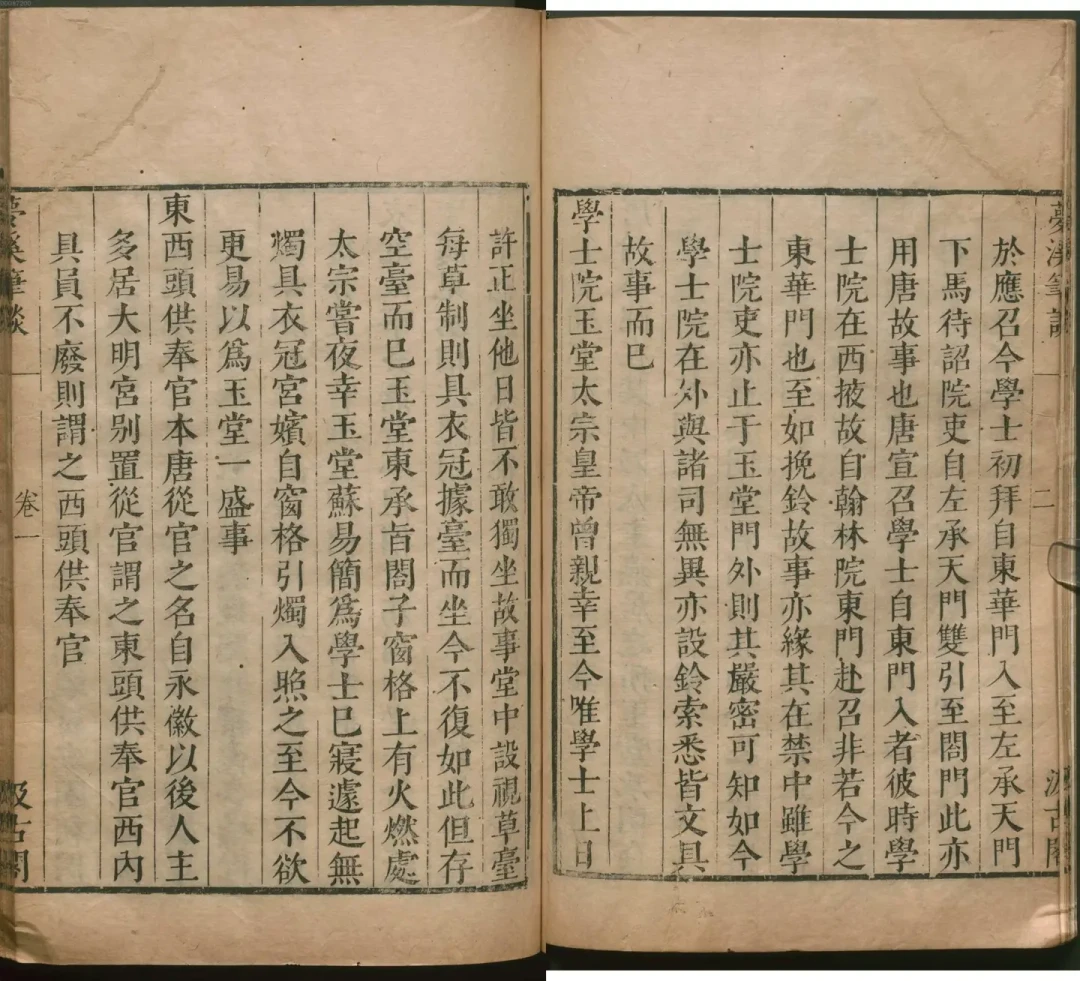 夢溪筆談
二
汲古閣
於應召今學士初拜自東華門入至左承天門
下馬待詔院吏自左承天門雙引至閤門此亦
用唐故事也唐宣召學士自東門入者彼時學
士院在西掖故自翰林院東門赴召非若今之
東華門也至如挽鈴故事亦緣其在禁中雖學
士院吏亦止于玉堂門外則其嚴密可知如今
學士院在外與諸司無異亦設鈴索悉皆文具
故事而已
學士院玉堂太宗皇帝曾親幸至今唯學士上日
許正坐他日皆不敢獨坐故事堂中設視草臺
每草制則具衣冠據臺而坐今不復如此但存
空臺而已玉堂東承旨閤子窗格上有火燃處
太宗嘗夜幸玉堂蘇易簡為學士已寢遽起無
燭具衣冠宮嬪自窗格引燭入照之至今不欲
更易以為玉堂一盛事
東西頭供奉官本唐從官之名自永徽以後人主
多居大明宮别置從官謂之東頭供奉官西內
具員不廢則謂之西頭供奉官
夢溪筆談
卷一
汲古閣